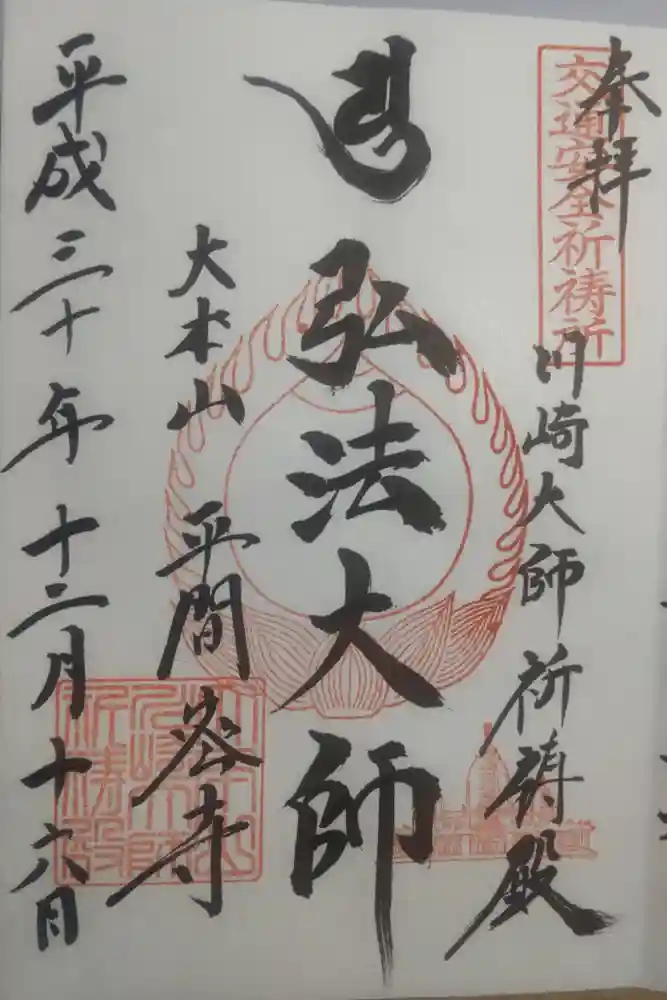 奉拝
交通安全祈祷所
川崎大師 祈祷殿
弘法大師
大本山 平間寺
平成三十年 十二月 十六日